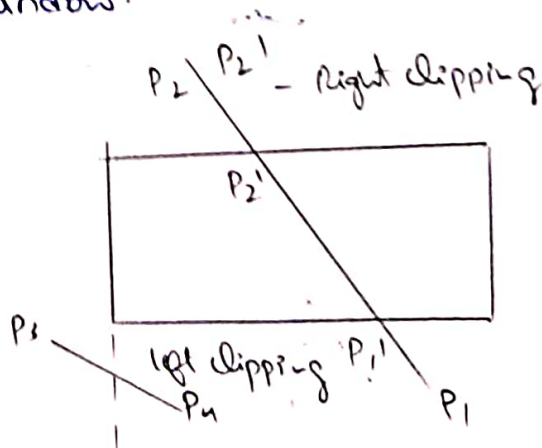 window.
P2 P2' - Right clipping
P2'
P3 left clipping P1'
P4 P1